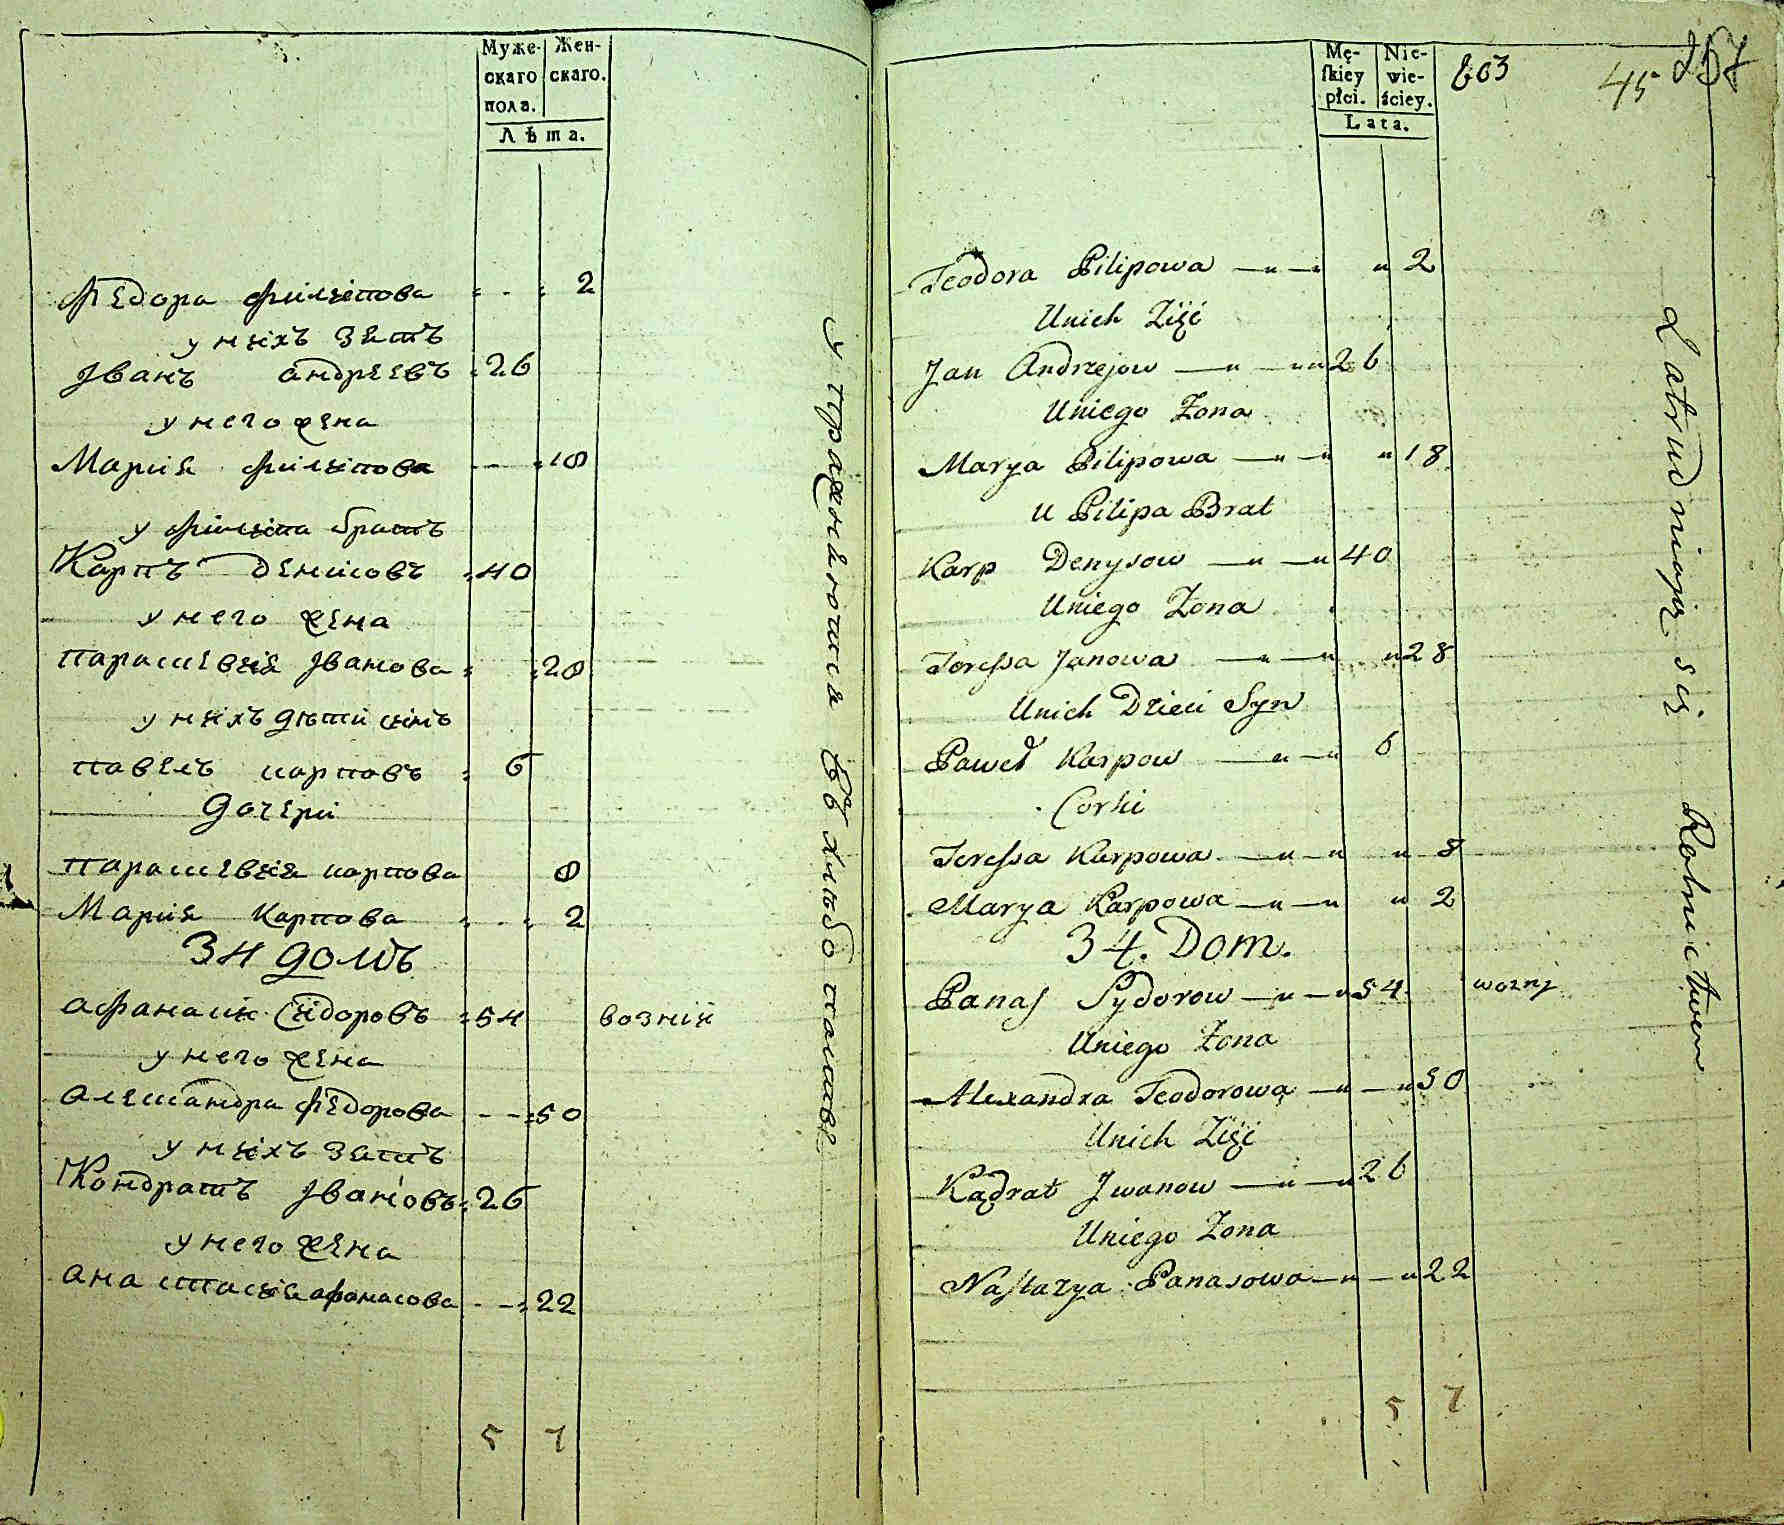 Муже- Жен-
скаго скаго.
пола.
Лѣта.
Федора филипова 2
у нихъ зять
Іванъ андреевъ 26
у него жена
Мария филипова 18
у филипа братъ
Карпъ денисовъ 40
у него жена
парасковия Іванова 28
у нихъ дѣти синъ
павелъ карповъ 6
дочери
парасковия карпова 8
Мария Карпова 2
34 домъ
афанасий Сидоровъ 54 возний
у него жена
александра федорова 50
у нихъ зять
Кондратъ Івановъ 26
у него жена
анастасия афонасова 22
5 7
упражняются въ хлебопашьве
Mę- Nie-
skiey wie-
płci. ściey.
Lata.
603 45 257
Teodora Pilipowa 2
Unich Zięć
Jan Andrzejow 26
Uniego Zona
Marya Pilipowa 18
u Pilipa Brat
Karp Denysow 40
Uniego Zona
Teressa Janowa 28
Unich Dzieci Syn
Paweł Karpow 6
Corki
Teressa Karpowa 8
Marya Karpowa 2
34. Dom.
Panas Sydorow 54 wozny
Uniego Zona
Alexandra Teodorowa 50
Unich Zięć
Kądrat Jwanow 26
Uniego Zona
Nastazya Panasowa 22
5 7
Zatrudniają się Rolnictwem